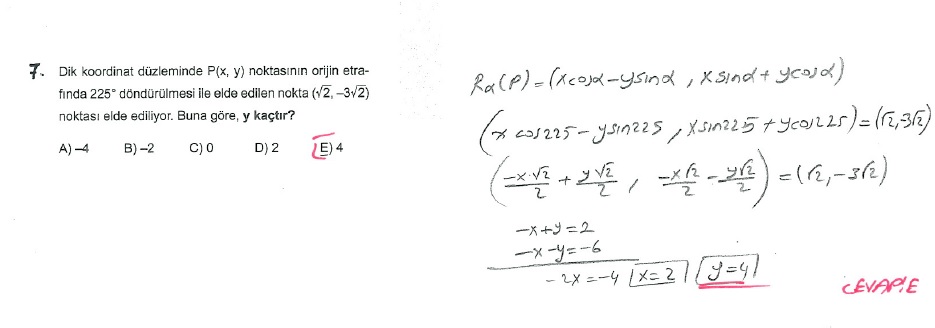 7. Dik koordinat düzleminde P(x, y) noktasının orijin etra-
fında 225° döndürülmesi ile elde edilen nokta (√2, –3√2)
noktası elde ediliyor. Buna göre, y kaçtır?
A) –4 B) –2 C) 0 D) 2 E) 4
Rα(P) = (xcosα – ysinα , xsinα + ycosα)
(x cos225 – ysin225 , xsin225 + ycos225) = (√2, 3√2)
(-x·√2/2 + y√2/2 , -x√2/2 - y√2/2) = (√2, -3√2)
-x+y=2
-x-y=-6
-2x=-4 x=2 y=4
CEVAP:E